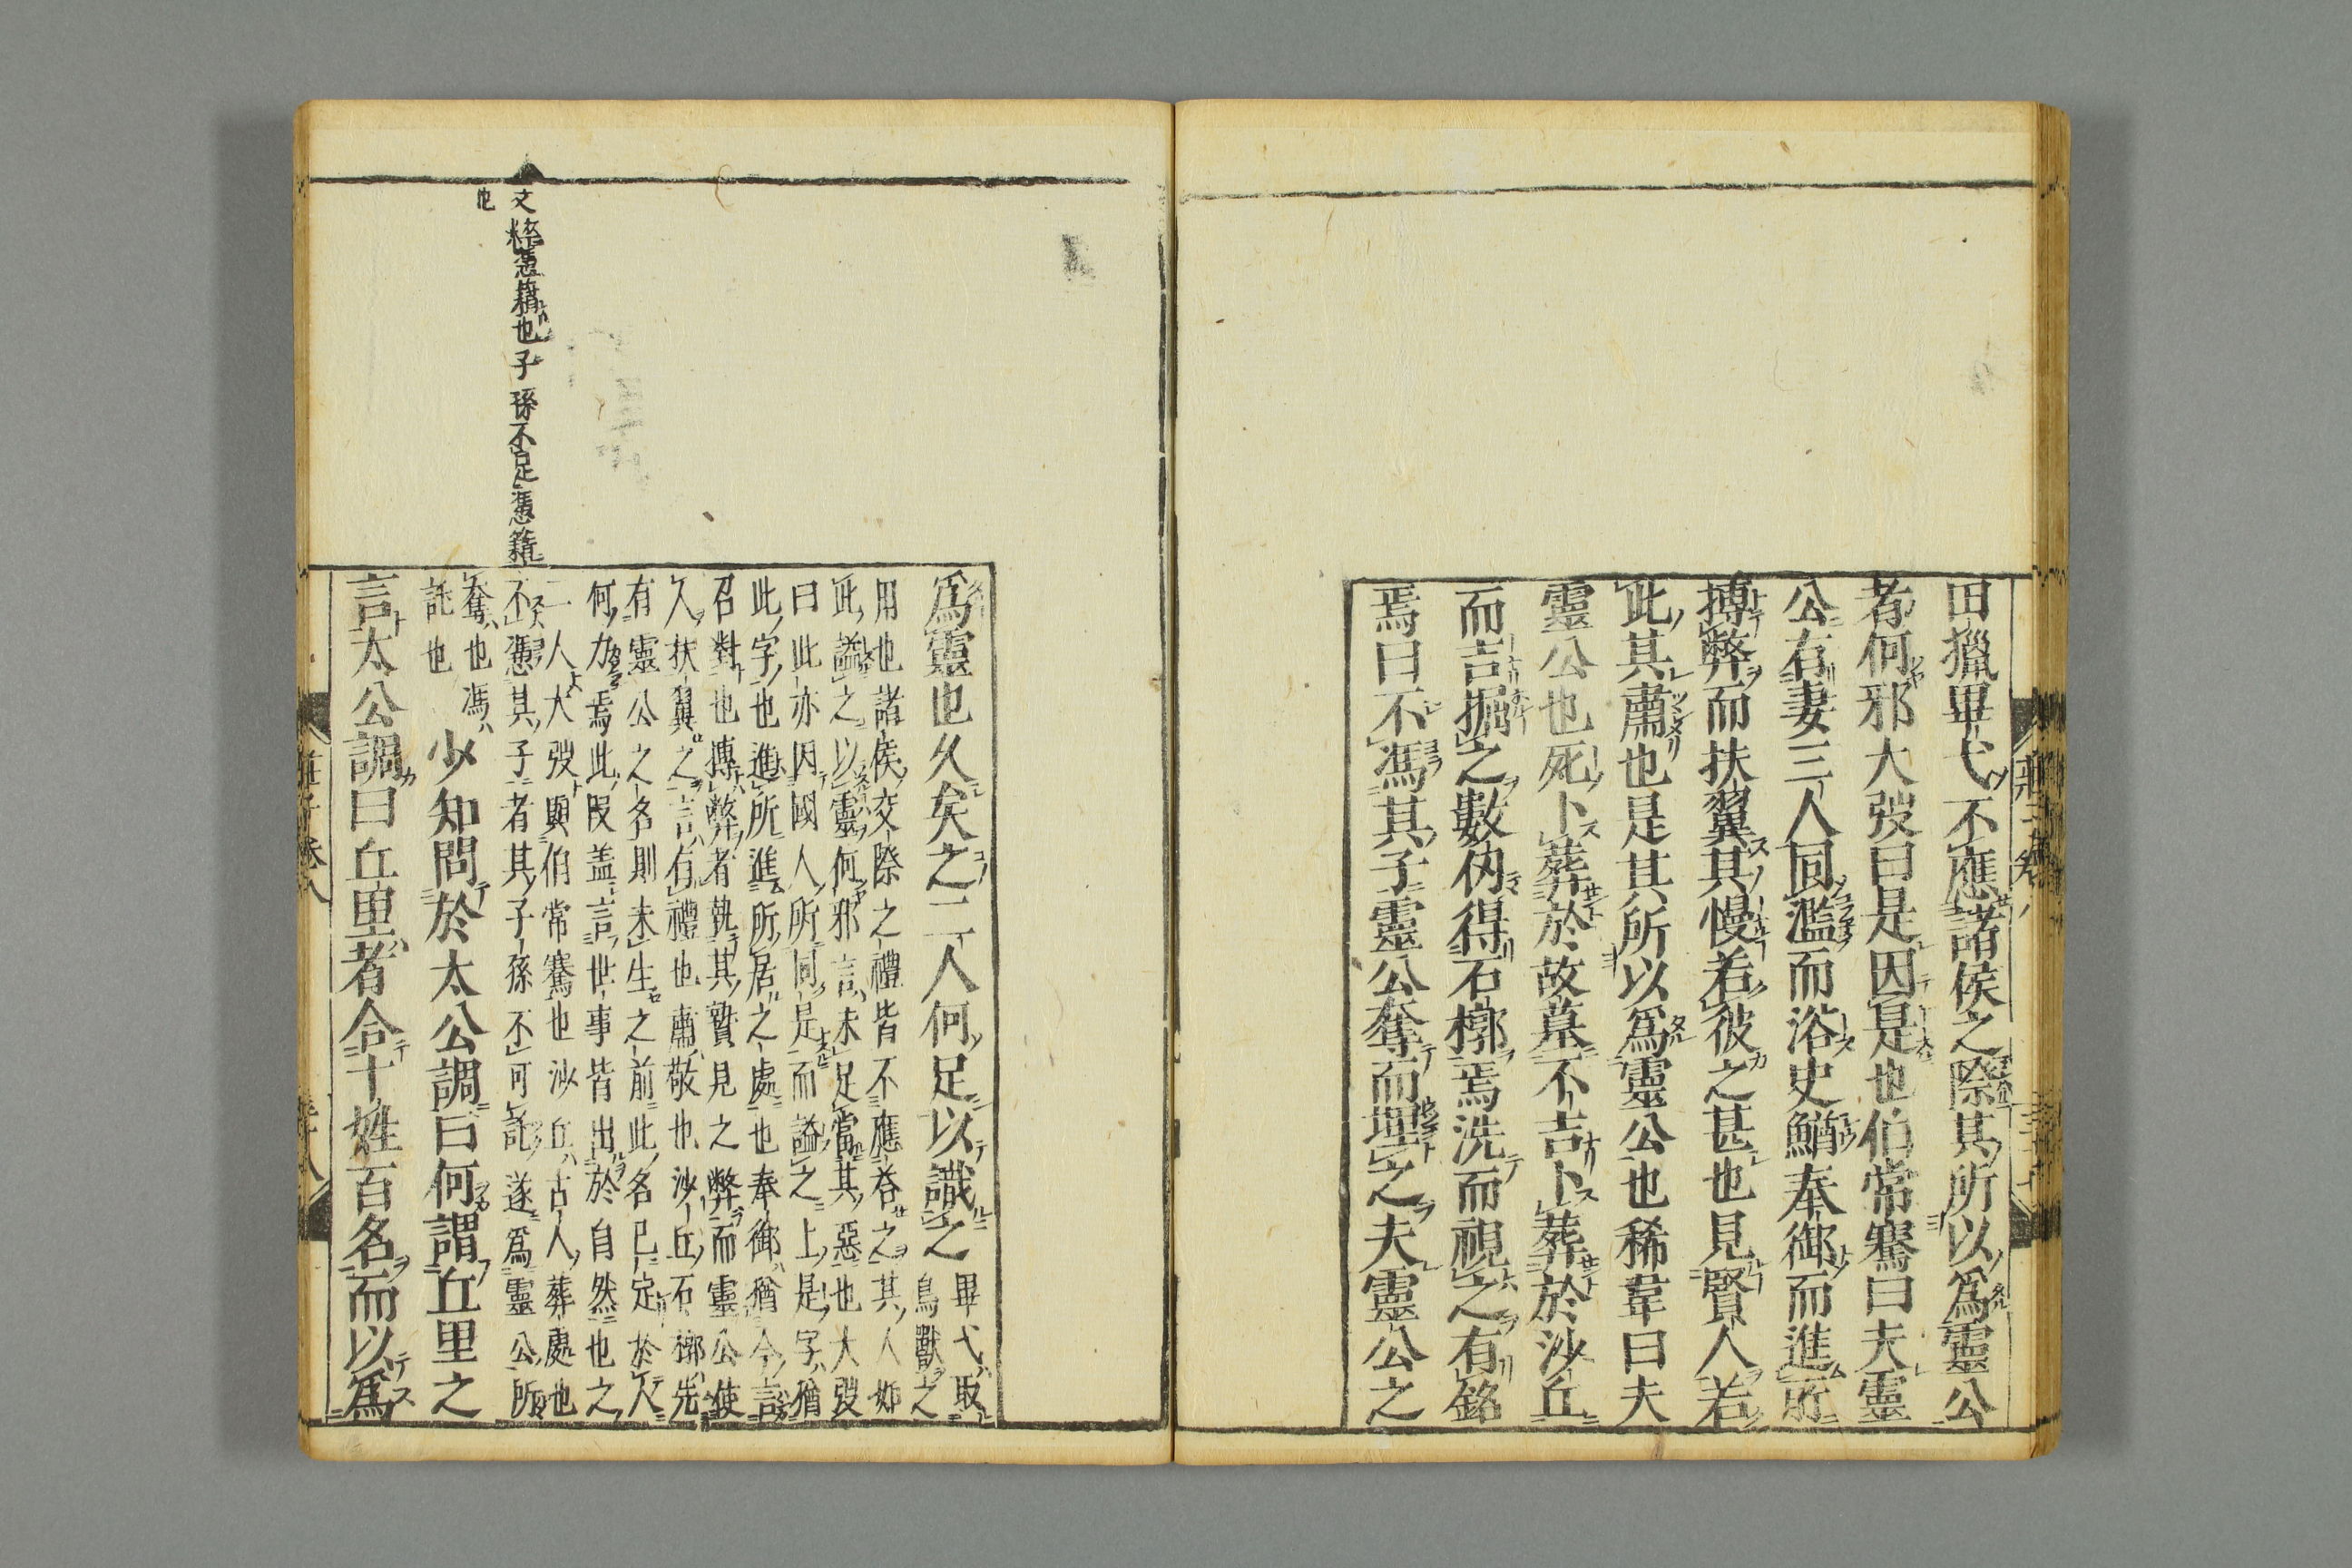 田獵畢弋不應諸侯之際其所以爲靈公
者何邪大弢曰是因是也伯常騫曰夫靈
公有妻三人同濫而浴史鰌奉御而進所
搏弊而扶翼其慢若彼之甚也見賢人若
此其肅也是其所以爲靈公也狶韋曰夫
靈公也死卜葬於故墓不吉卜葬於沙丘
而吉掘之數仭得石槨焉洗而視之有銘
焉曰不馮其子靈公奪而埋之夫靈公之
爲靈也久矣之二人何足以識之 畢弋取
鳥獸之
用也諸侯交際之禮皆不應荅之其人如
此謚之以靈何邪言未足當其惡也大弢
曰此亦因國人所同是而謚之上是字猶
此字也進所進所居之處也奉御猶今言
召對也搏弊者執其贄見之弊而靈公使
人扶翼之言有禮也肅敬也沙丘石槨先
有靈公之名則未生之前此名已定於人
何力焉此段盖言世事皆出於自然也之
二人大弢與伯常騫也沙丘古人葬處也
不憑其子者其子孫不可託遂爲靈公所
奪也馮
託也
少知問於太公調曰何謂丘里之
言太公調曰丘里者合十姓百名而以爲
文粹憑藉也子孫不足憑籍
也
莊子卷八